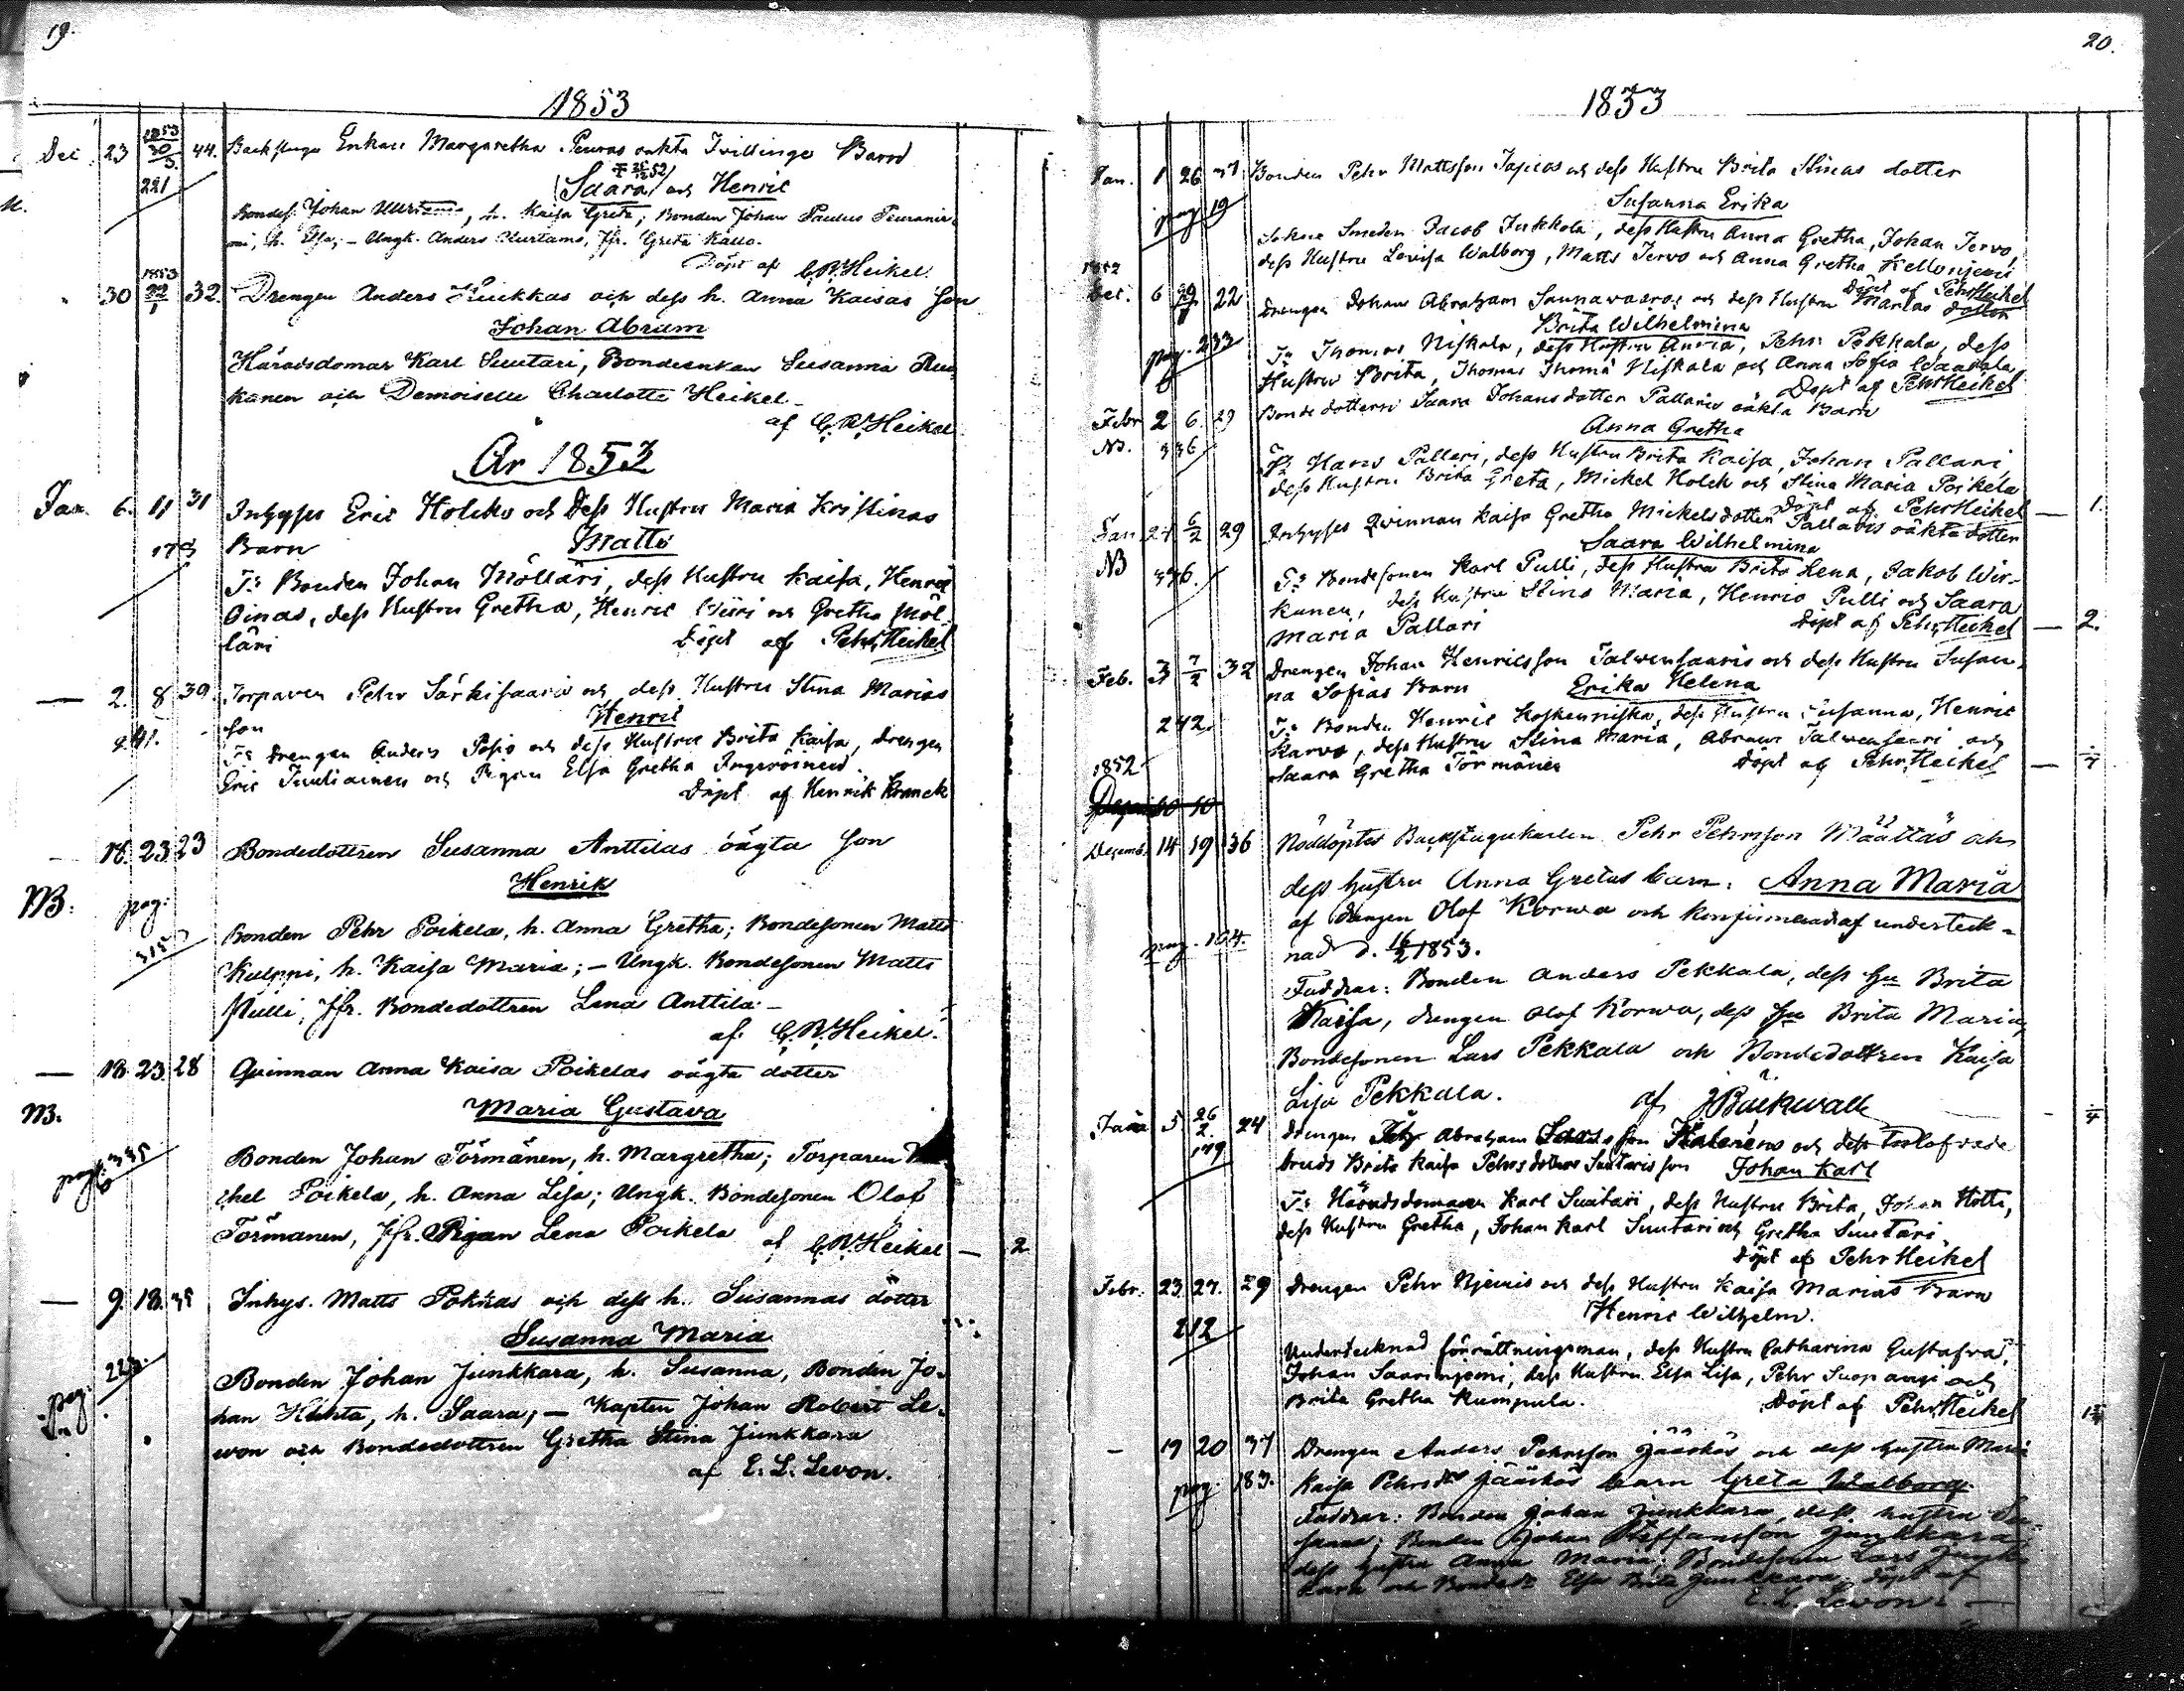 19.
1853
Dec. 23 1853 30/3. 44. Backstugu Enkan Margaretha Peuras oäkta Tvillinge Barn
221 Saara och Henric
Bondes. Johan Kurtams, h. Kaisa Greta; Bonden Johan Paulus Peuranie-
mi, h. Elsa; – Ungk. Anders Kurtams, Jfr. Greta Kallo.
Döpt af C.R. Heikel.
30 1853 22/1 32. Drengen Anders Kuukkas och dess h. Anna Kaisas Son
Johan Abram
Häradsdomar Karl Suutari, Bondeenkan Susanna
kanen och Demoiselle Charlotte Heikel –
af C.R. Heikel
År 1853
Jan. 6. 11 31 Inhyses Eric Holcko och Dess Hustru Maria Kristinas
Barn Matts
Fr Bonden Johan Mölläri, dess Hustru Kaisa, Henric
Oinas, dess Hustru Gretha, Henric Wiiri och Gretha Möl-
läri Döpt af Pehr Heikel
— 2. 8 39. Torparen Pehr Särkisaari och dess Hustru Stina Marias
son Henric
241. Fr Drengen Anders Posio och dess Hustru Brita Kaisa, Drengen
Eric Juuliainen och Pigan Elsa Gretha Ingeröinen.
Döpt af Henrik Kranck
— 16. 23 23 Bondedottren Susanna Anttilas oägta Son
Henrik
NB. pag: 315 Bonden Pehr Poikela, h. Anna Gretha; Bondesonen Matts
Kulppi, h. Kaisa Maria; – Ungk. Bondesonen Matts
Pulli, Jfr. Bondedottren Lena Anttila –
af C.R. Heikel.
— 18. 23. 28 Qvinnan Anna Kaisa Poikelas oägta dotter
NB. Maria Gustava
Bonden Johan Törmänen, h. Margretha; Torparen Mi-
chel Poikela, h. Anna Lisa; Ungk. Bondesonen Olof
Törmanen, Jfr. Pigan Lena Poikela af C.R. Heikel — 2
— 9. 18. 39 Inhys. Matts Pokkas och dess h. Susannas dotter
Susanna Maria
Bonden Johan Junkkara, h. Susanna, Bonden Jo-
han Huhta, h. Saara; – Kapten Johan Robert Le-
won och Bondedottren Gretha Stina Junkkara
af E. L. Levon.
20.
1853
Jan. 1 26 37 Bonden Pehr Mattsson Tapios och dess Hustru Brita Stinas dotter
pag 19 Susanna Erika
Sokne Smeden Jacob Jukkola, dess Hustru Anna Gretha, Johan Jervo,
dess Hustru Lovisa Walborg, Matts Jervo och Anna Gretha Kelloniemi
Döpt af Pehr Heikel
1852 Dec. 6 22 Drengen Johan Abraham Saunavaaras och dess Hustru Marias dotter
Brita Wilhelmina
pag. 233 Fr Thomas Niskala, dess Hustru Anna, Pehr Pekkala, dess
Hustru Brita, Thomas Thomä Niskala och Anna Sofia Waarala
Döpt af Pehr Heikel
Febr 2 6. 29 Bonde dottern Saara Johansdotter Pallaris oäkta Barn
NB. 336 Anna Gretha
Fr Hans Pallari, dess Hustru Brita Kaisa, Johan Pallari,
dess Hustru Brita Greta, Mickel Holck och Stina Maria Poikela
Döpt af Pehr Heikel — 1.
Jan 27 6/2 29 Inhyses Qvinnan Kaisa Gretha Mickelsdotter Pallaris oäkta dotter
NB Saara Wilhelmina
336. Fr Bondesonen Karl Pulli, dess Hustru Brita Lena, Jakob Wir-
kunen, dess Hustru Stina Maria, Henric Pulli och Saara
Maria Pallari Döpt af Pehr Heikel — 2.
Feb. 3 7/2 32 Drengen Johan Henricsson Talwensaaris och dess Hustru Susan-
na Sofias Barn Erika Helena
242. Fr Bonden Henric Koskenniska, dess Hustru Susanna, Henric
Karvo, dess Hustru Stina Maria, Abram Talwensaari och
Saara Gretha Törmänen Döpt af Pehr Heikel —
1852
Decemb. 14 19 36 Nöddöptes Backstugukarlen Pehr Pehrsson Määttäs och
dess hustru Anna Gretas barn: Anna Maria
af drengen Olof Korwa och konfirmerad af underteck-
pag. 164. nad d. 16/2 1853.
Faddrar: Bonden Anders Pekkala, dess hu Brita
Kaisa, drengen Olof Korwa, dess hu Brita Maria,
Bondesonen Lars Pekkala och Bondedottren Kaisa
Lisa Pekkala. af J Bäckwall
5 26/2. 24 drengen Abraham och dess trolofvade
179 bruds Brita Kaisa Pehrsdotter Suutaris son Johan Karl
Fr Häradsdomaren Karl Suutari, dess Hustru Brita, Johan Hotti,
dess Hustru Gretha, Johan Karl Suutari och Gretha Suutari.
Döpt af Pehr Heikel
Febr. 23. 27. 29 drengen Pehr Njemis och dess Hustru Kaisa Marias Barn
212 Henric Wilhelm.
Undertecknad förrättningsman, dess Hustru Catharina Gustafva,
Johan Saariniemi, dess Hustru Elsa Lisa, Pehr Suopanje och
Brita Gretha Kumpula. Döpt af Pehr Heikel
— 19 20 37 Drengen Anders Pehrsson Jääskös och dess hustru Maria
pag: 183. Kaisa Pehrsdr Jääskös barn Greta Walborg
Faddrar: Bonden Johan Junkkara, dess hustru Su-
sanna; Bonden Johan Steffansson Junkkara,
dess hustru Anna Maria; Bondesonen Lars Junk-
kara och Bondedr Elsa Brita Junkkara. Döpt af
E. L. Levon. —